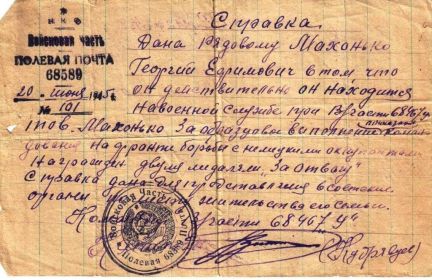 Н К О
Войсковая часть
ПОЛЕВАЯ ПОЧТА
68589
20 июня 1945 г
№ 101
Справка
Дана рядовому Махонько
Георгий Ефимович в том, что
он действительно он находится
На военной службе при В/части 68467 "У"
Тов. Махонько За образцовое выполнение
на фронте борьбы с немецкими оккупантами
Награжден двумя медалями "За отвагу"
Справка дана для представления в советские
органи жительства его семьи.
части 68467 "У"
Войсковая Часть
Полевая 68589